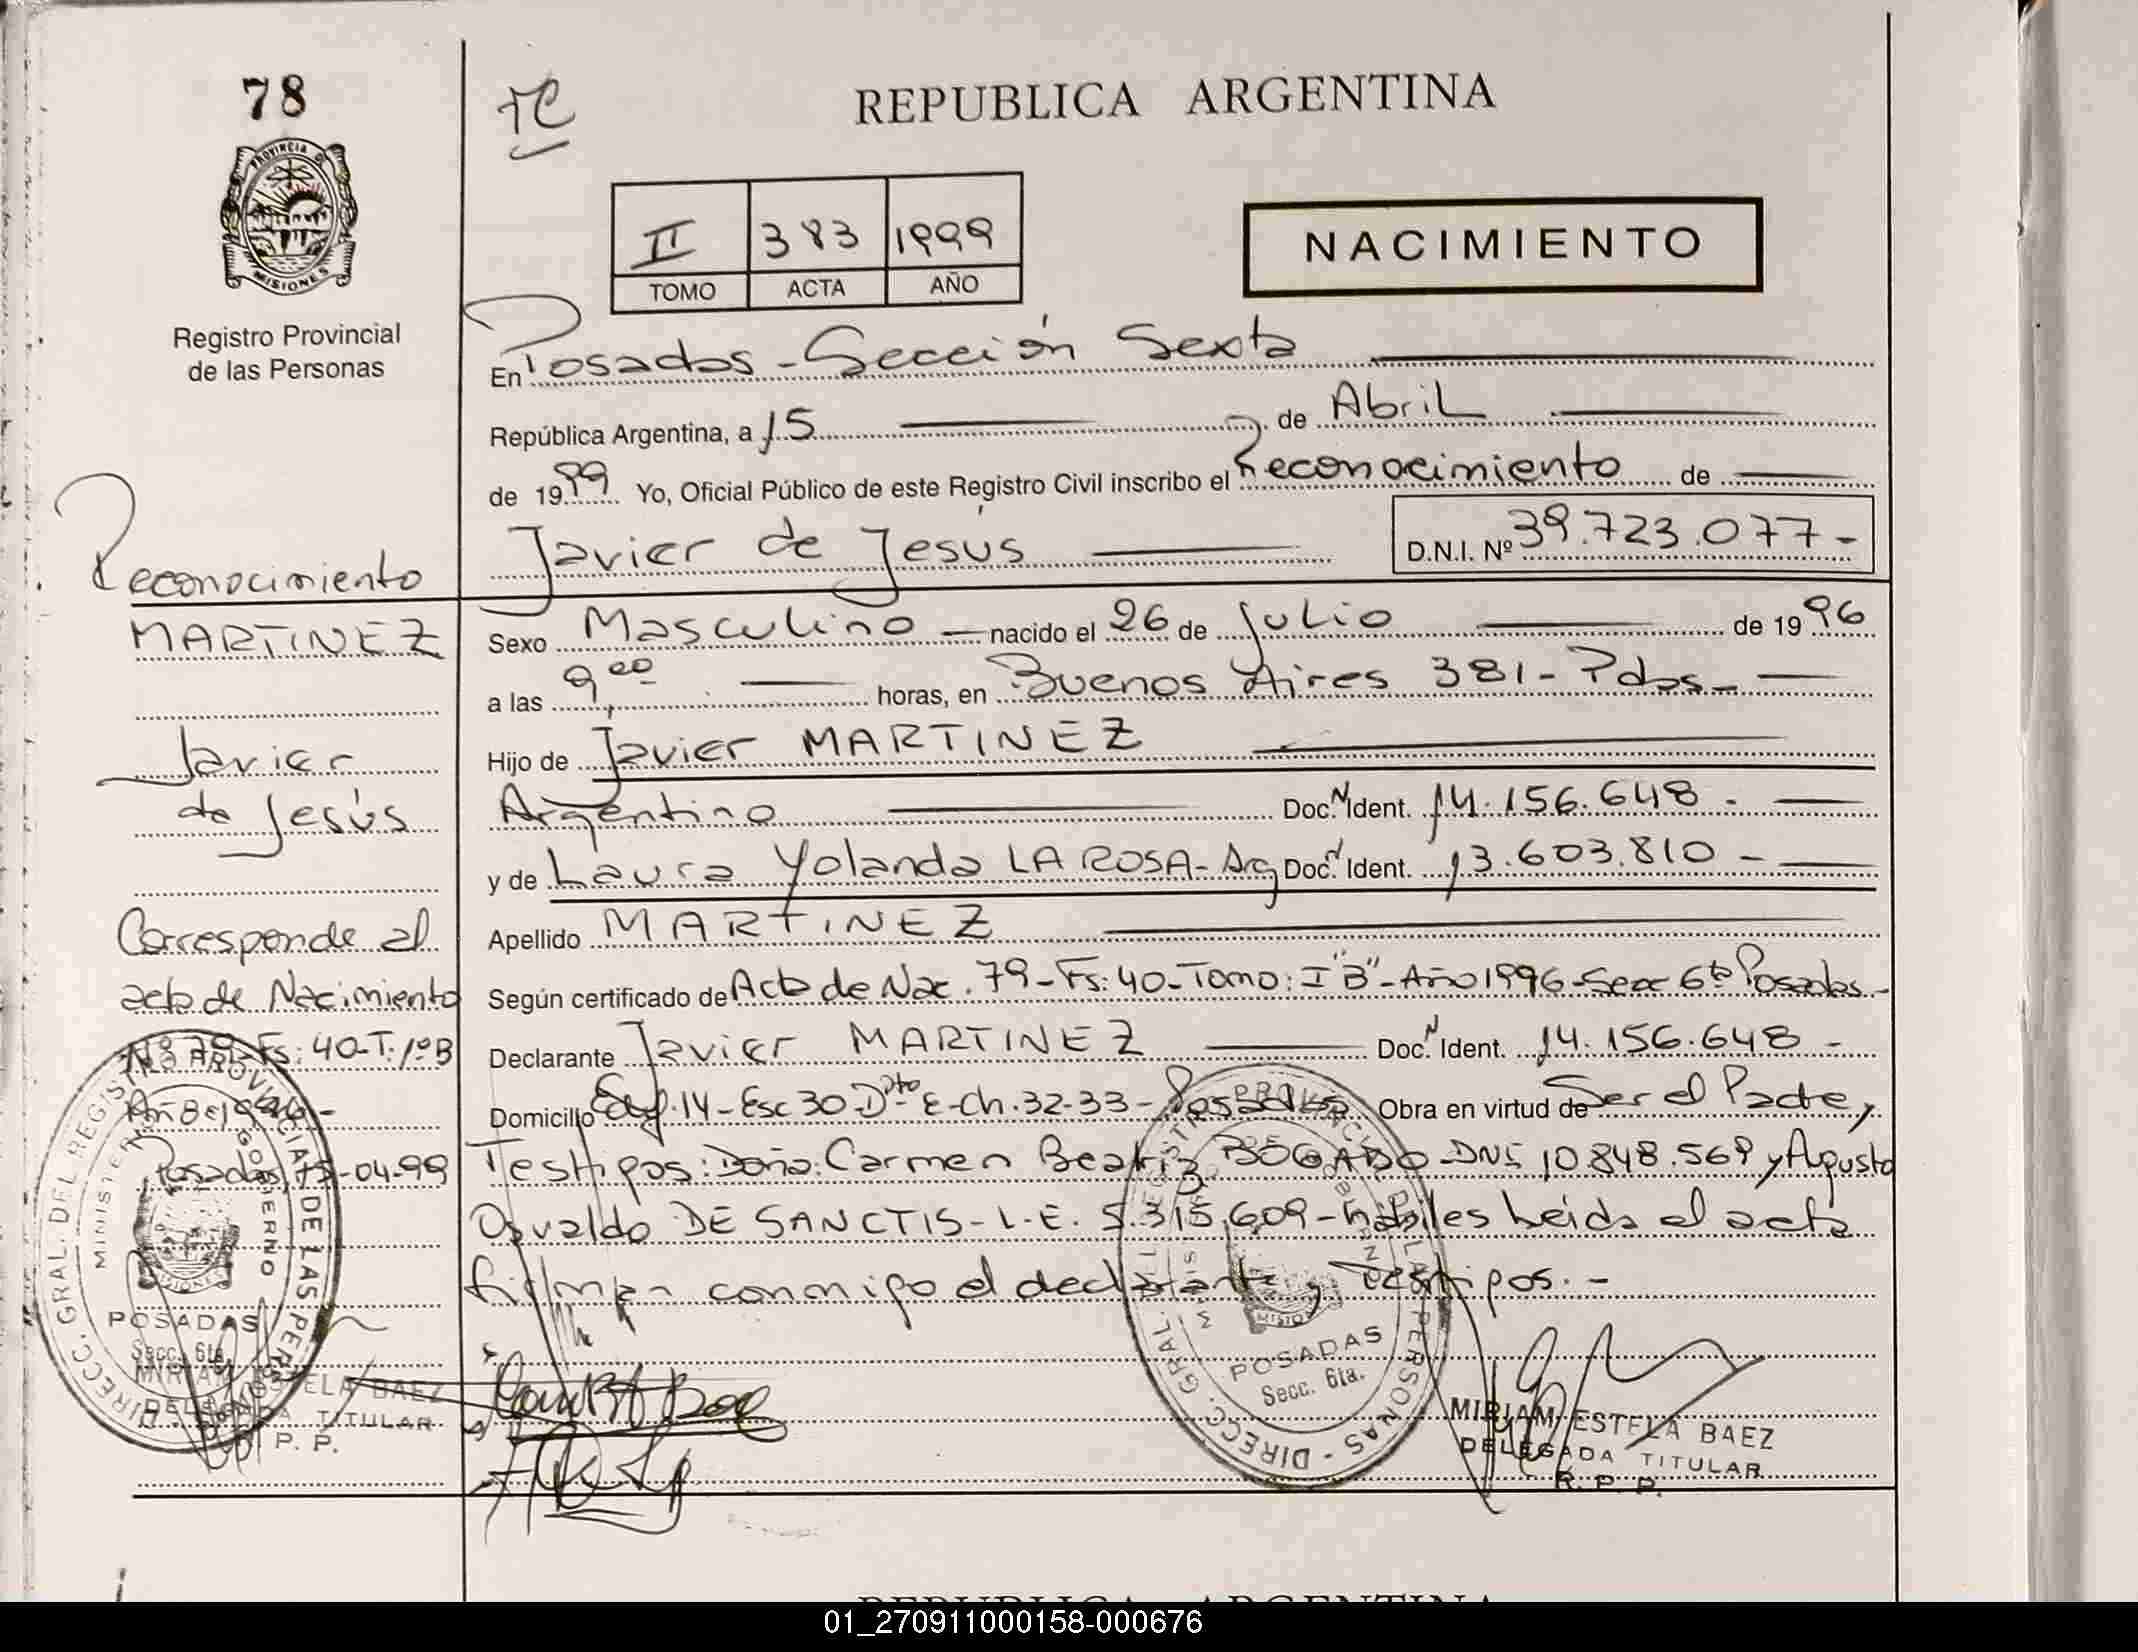 78
TC
REPUBLICA ARGENTINA
PROVINCIA D
MISIONES
Registro Provincial
de las Personas
II 383 1999
TOMO ACTA AÑO
NACIMIENTO
En Posadas - Sección Sexta
República Argentina, a 15 de Abril
de 1999 Yo, Oficial Público de este Registro Civil inscribo el Reconocimiento de
Javier de Jesús D.N.I. Nº 39.723.077-
Reconocimiento
MARTINEZ
Javier
de Jesús
Corresponde al
acta de Nacimiento
Nº 79 Fs: 40-T: 1º B
Posadas, 15-04-99
Sexo Masculino nacido el 26 de Julio de 1996
a las 9,00 horas, en Buenos Aires 381 - Pdas-
Hijo de Javier MARTINEZ
Argentino Doc. N Ident. 14.156.648.-
y de Laura Yolanda LA ROSA - Arg Doc. N Ident. 13.603.810-
Apellido MARTINEZ
Según certificado de Acta de Nac. 79 - Fs: 40 - Tomo: I "B" - Año 1996 - Secc 6ta Posadas-
Declarante Javier MARTINEZ Doc. N Ident. 14.156.648-
Domicilio Edif. 14 - Esc 30 Dpto E - Ch. 32-33 - Posadas Obra en virtud de Ser el Padre,
Testigos: Doña: Carmen Beatriz BOGADO - DNI 10.848.569 y Agusto
Osvaldo DE SANCTIS - L.E. 5.315.609 - hábiles leida el acta
firman conmigo el declarante y testigos.-
DIRECC. GRAL. DEL REGISTRO PROVINCIAL DE LAS PERSONAS
MINISTERIO GOBIERNO
MISIONES
POSADAS
Secc. 6ta.
MIRIAM ESTELA BAEZ
DELEGADA TITULAR
R. P. P.
DIRECC. GRAL. DEL REGISTRO PROVINCIAL DE LAS PERSONAS
POSADAS
Secc. 6ta.
MIRIAM ESTELA BAEZ
DELEGADA TITULAR
R. P. P.
REPUBLICA ARGENTINA
01_270911000158-000676